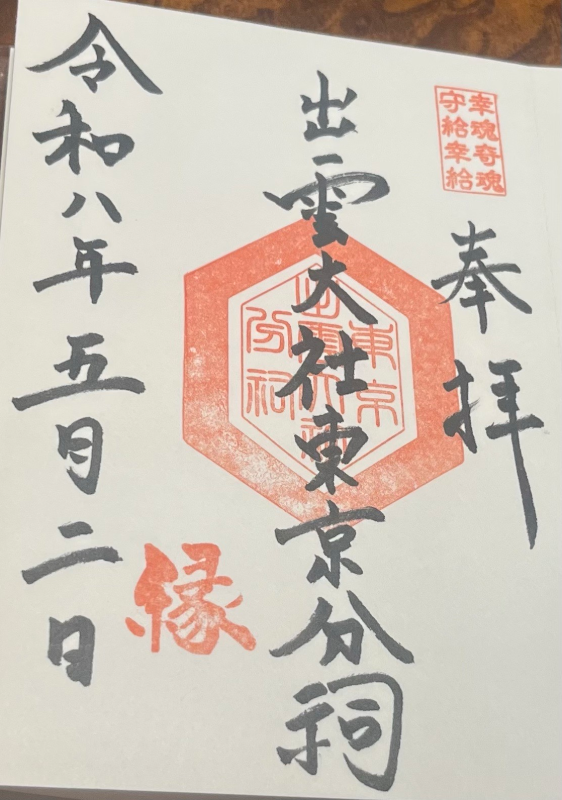 幸魂奇魂
守給幸給
奉拝
出雲大社東京分祠
東京
出雲大社
分祠
縁
令和八年五月二日